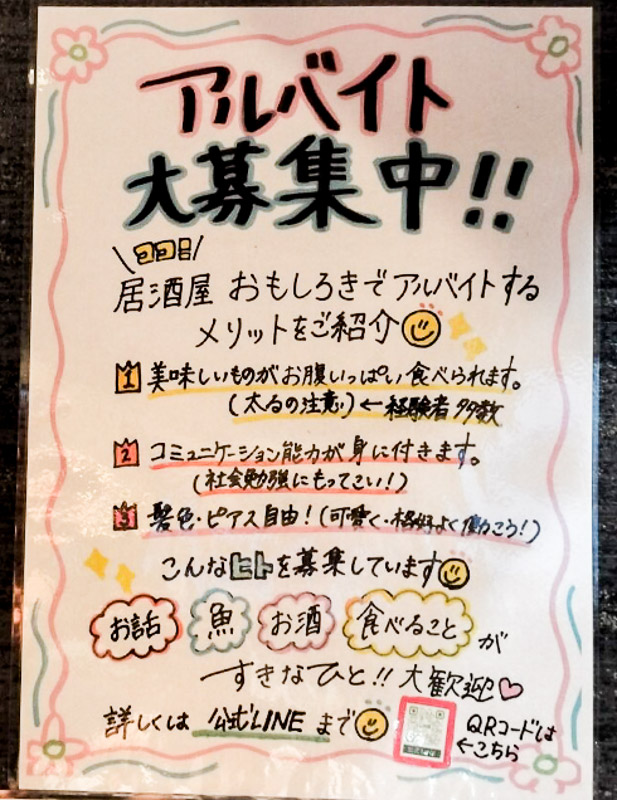 アルバイト
大募集中!!
\ココ!/
居酒屋 おもしろきでアルバイトする
メリットをご紹介
1 美味しいものがお腹いっぱい食べられます。
(太るの注意)←経験者多数
2 コミュニケーション能力が身に付きます。
(社会勉強にもってこい!)
3 髪色・ピアス自由!(可愛く・格好よく働こう!)
こんなヒトを募集しています
お話 魚 お酒 食べること が
すきなひと!! 大歓迎♡
詳しくは 公式LINE まで
QRコードは
←こちら